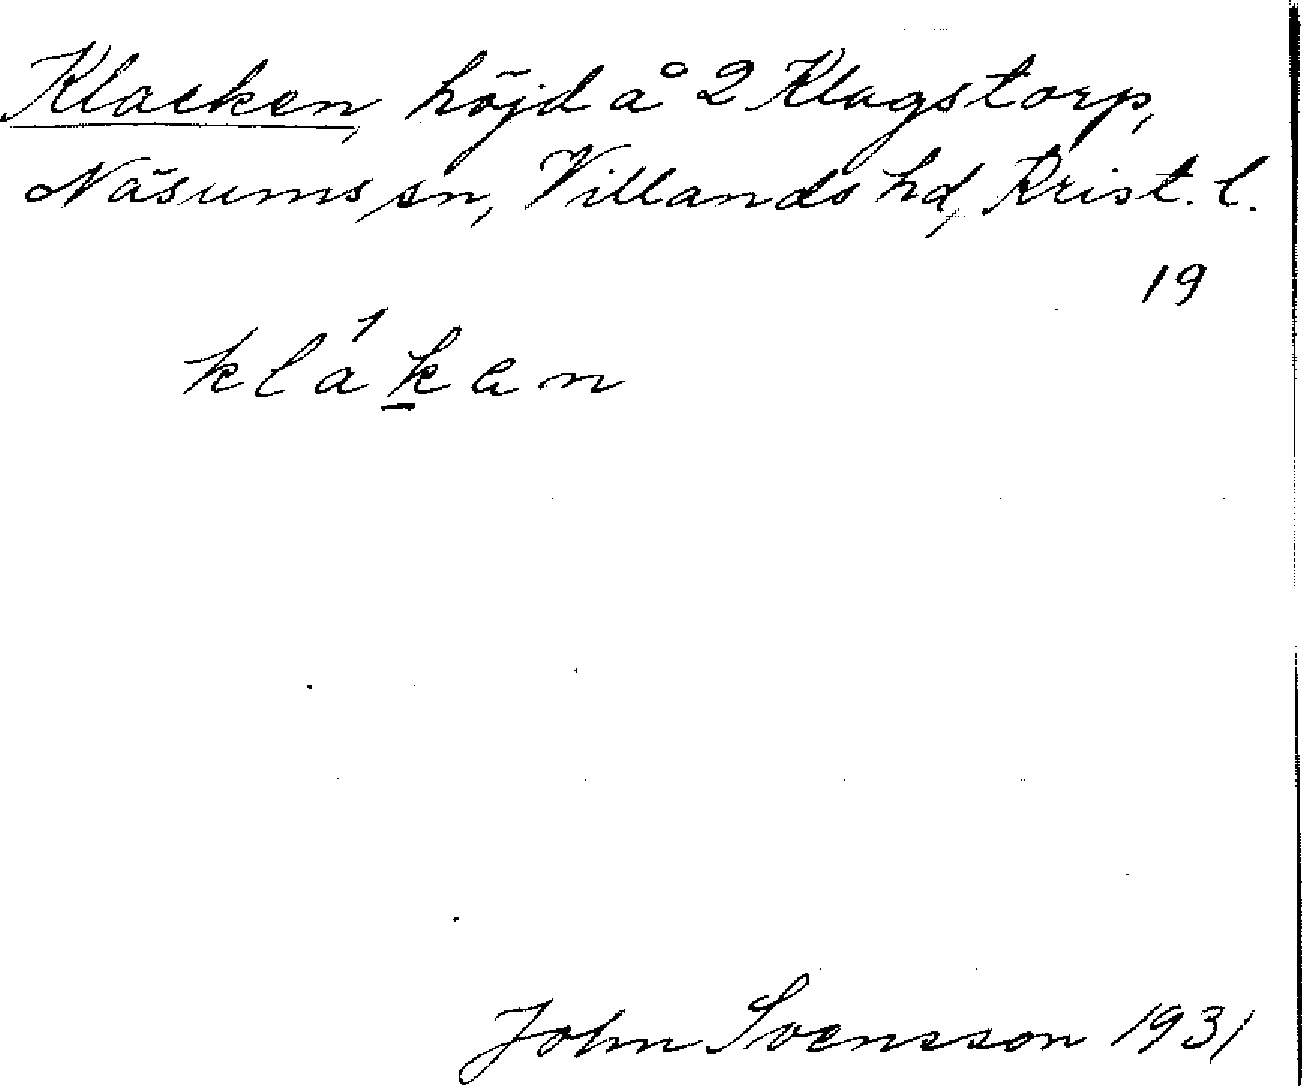 Klacken, höjd å 2 Klagstorp,
Näsums sn, Villands hd, Krist. l.
19
klákan
John Svensson 1931